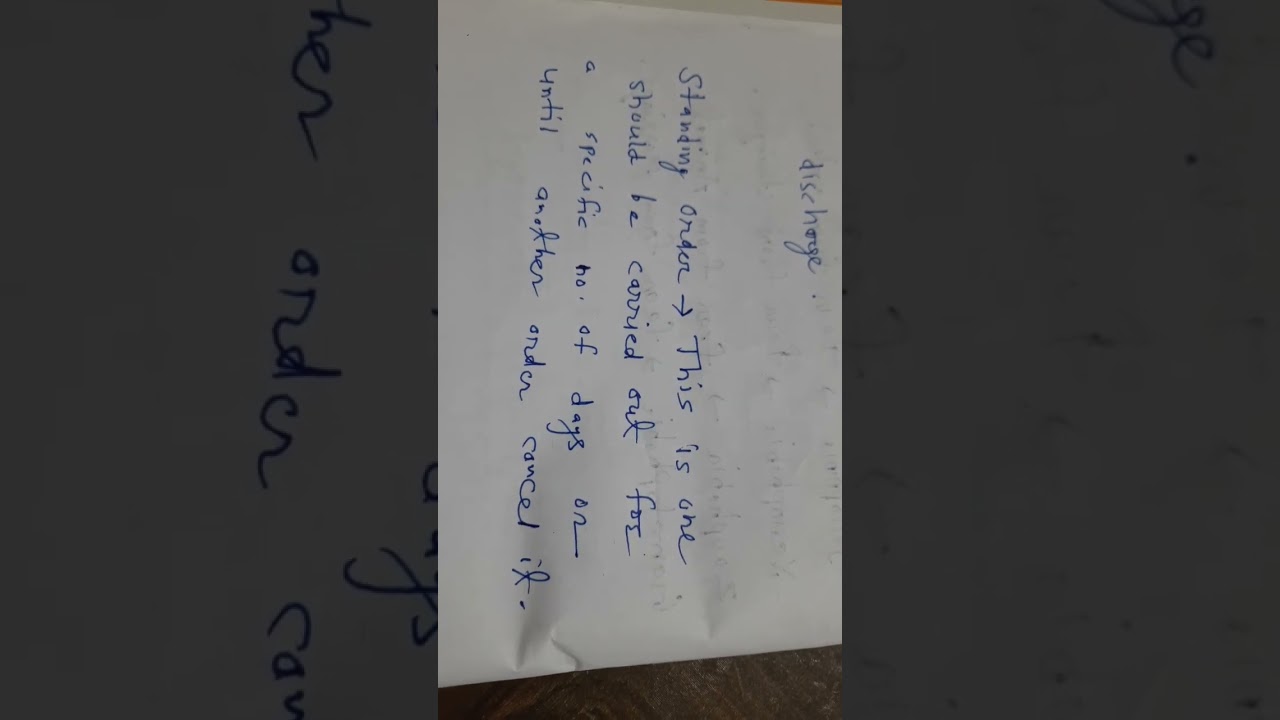 discharge.
Standing order → This is one
should be carried out for
a specific no. of days or
until another order cancel it.